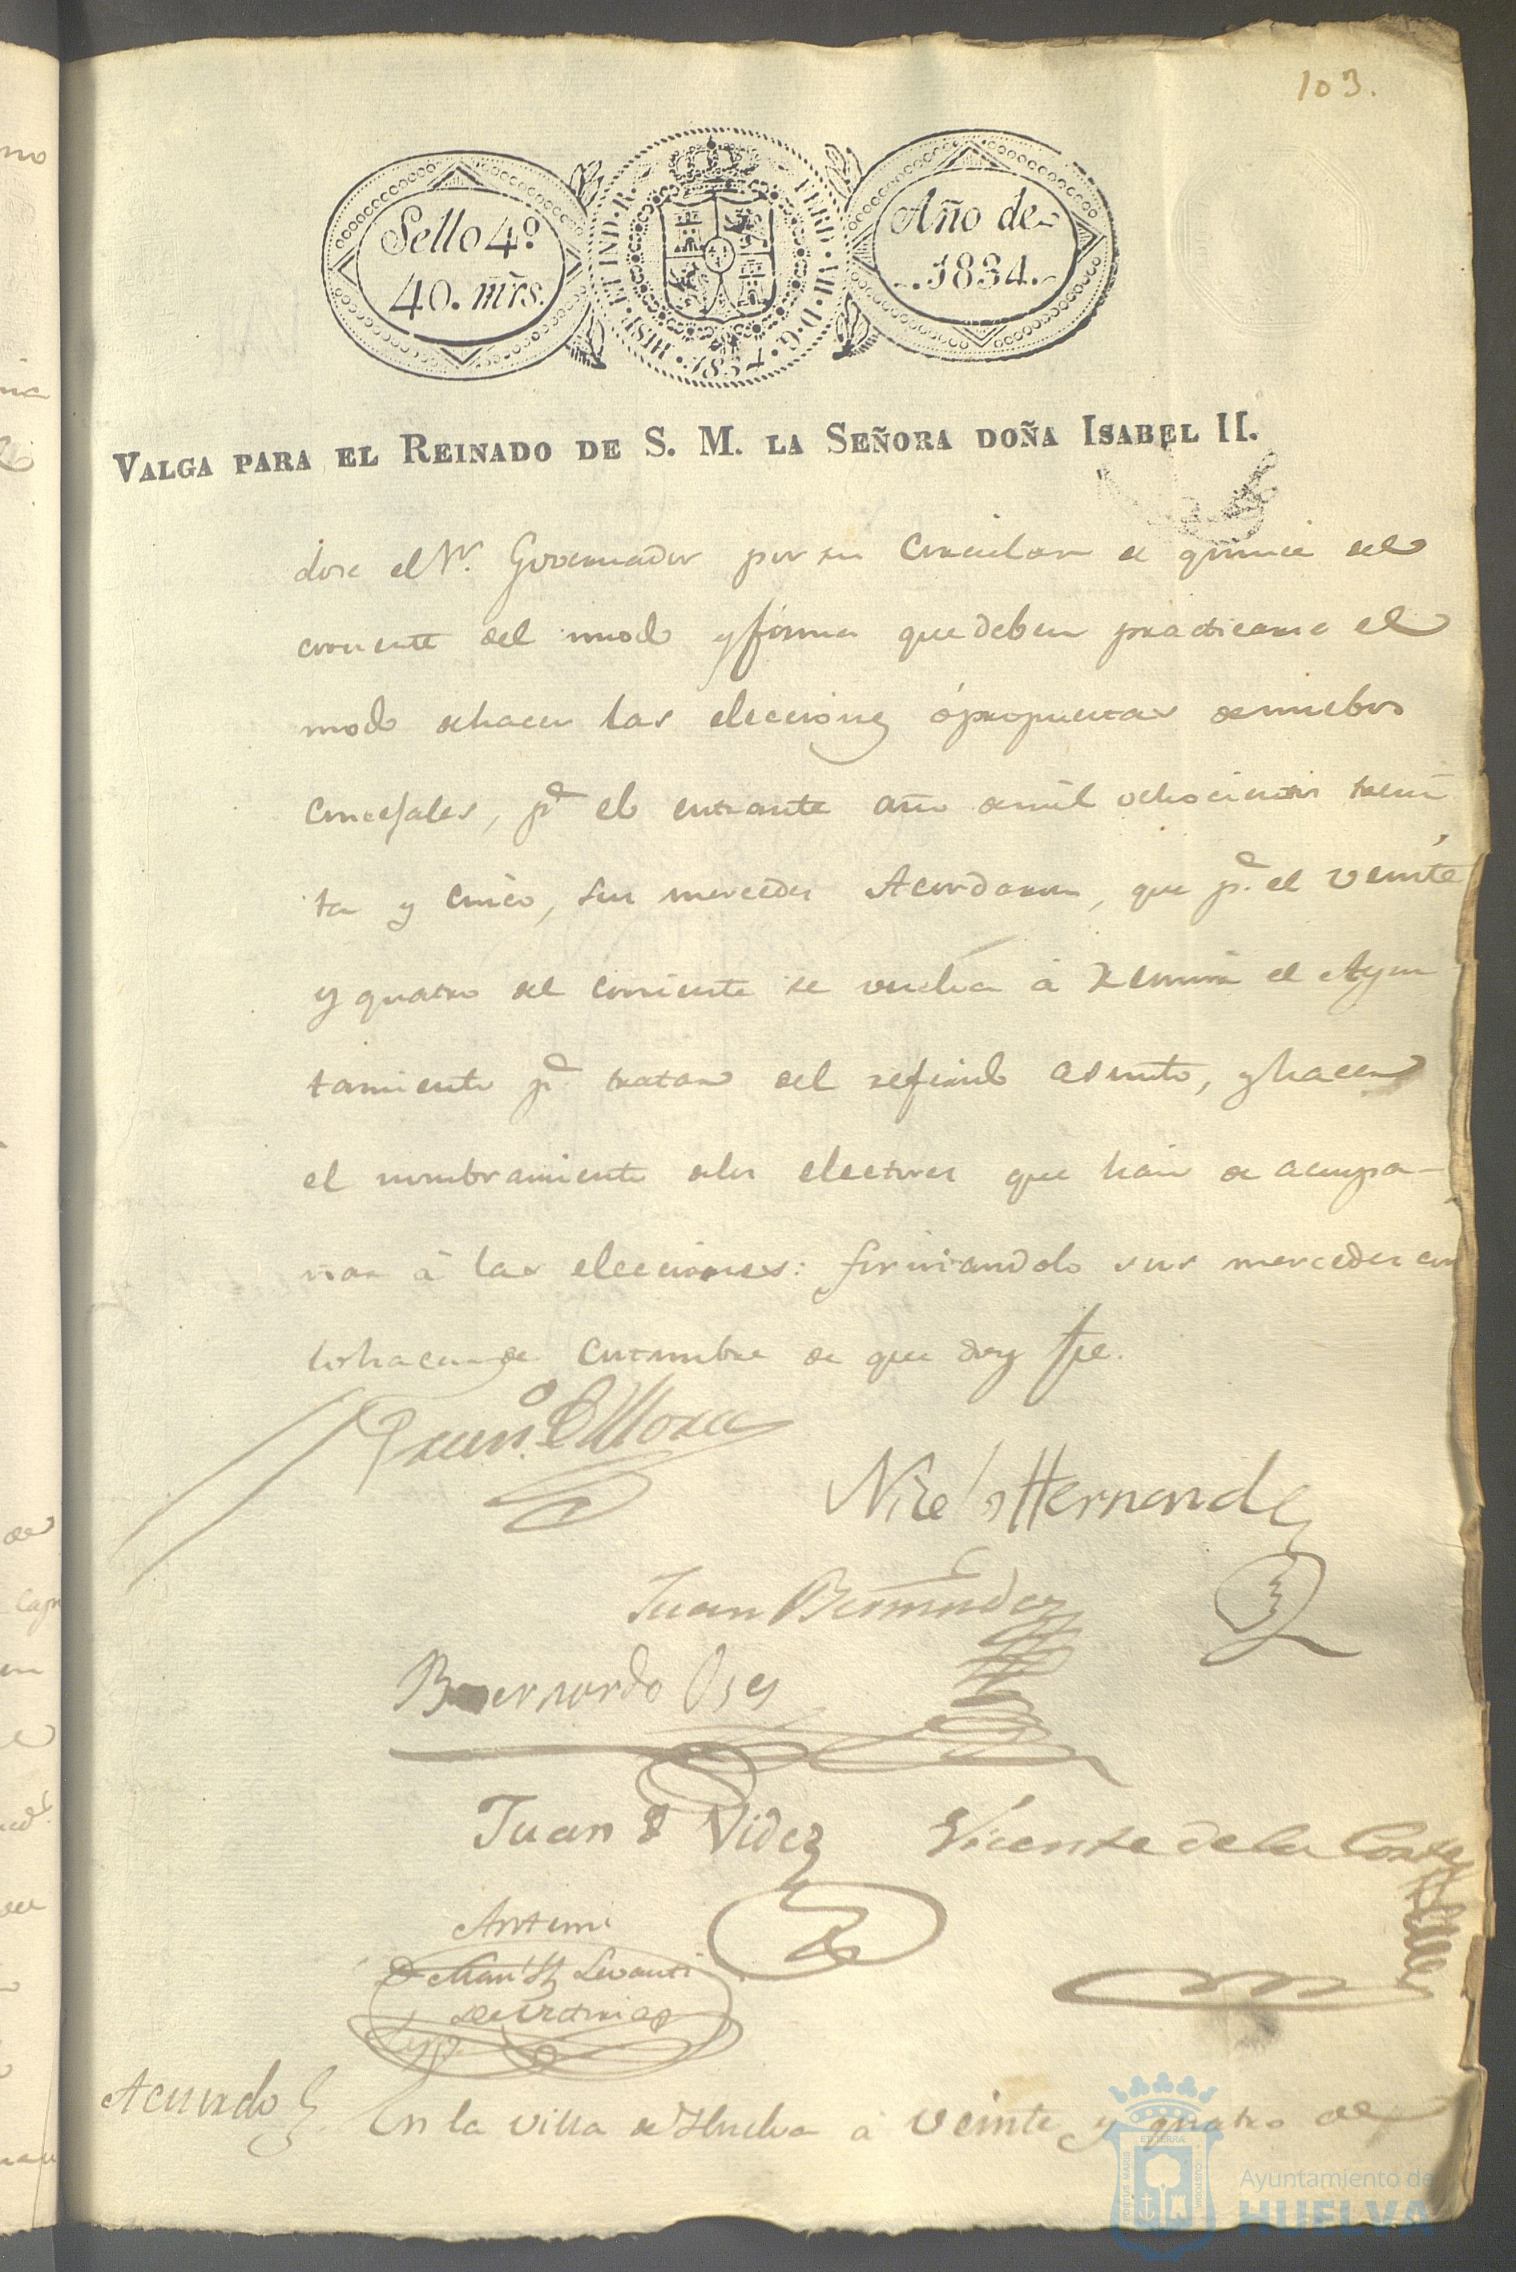 103.
Sello 4º
40. mrs.
HISP. ET IND. R.
FERD. VII. D. G.
1834
Año de
1834.
VALGA PARA EL REINADO DE S. M. LA SEÑORA DOÑA ISABEL II.
dose el Sr. Governador por su Circular de quince del
corriente del modo y forma que deben practicarse el
modo de hacer las elecciones ó propuestas de nuebos
Concejales, pª el entrante año de mil ochocientos trein
ta y cinco, sus mercedes Acordaron, que pª el veinte
y quatro del corriente se vuelva á reunir el Ayun
tamiento pª tratar del referido asunto, y hacer
el nombramiento de los electores que han de acompa-
ñar á las elecciones: firmandolo sus mercedes con
lo hacen de costumbre de que doy fe.
Franº de Mora
Nicolas Hernandez
Juan Bermudez
Bernardo
Juan Videz Vicente de la Corte
Antemi
Dn Man
Acuerdo En la villa de Huelva á veinte y quatro de
PORTUS MARIS ET TERRA CUSTODIA
Ayuntamiento de
HUELVA